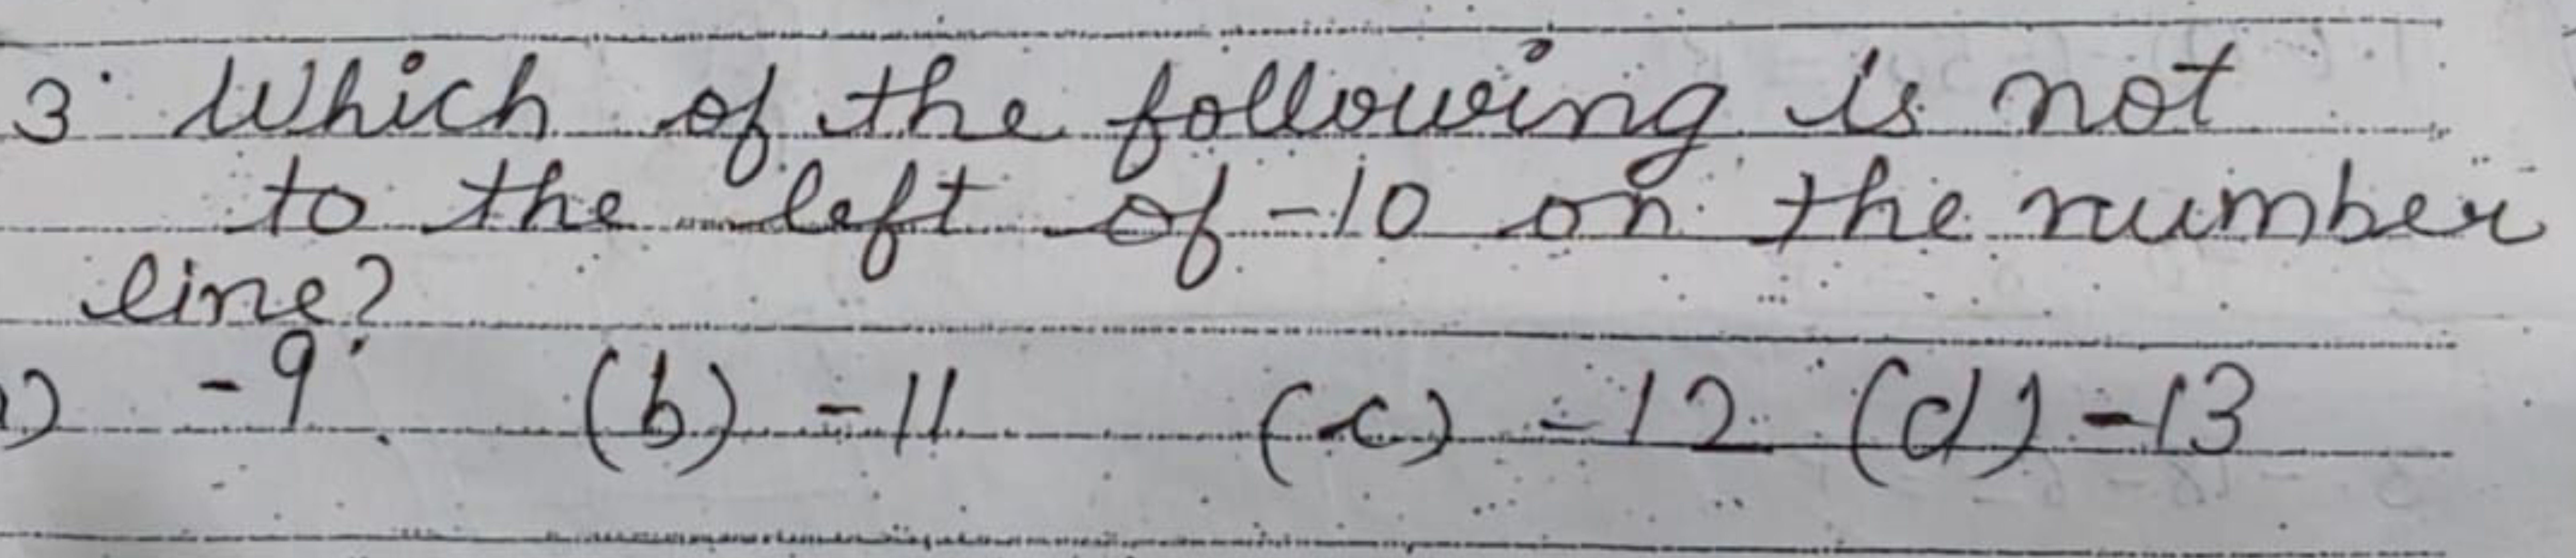 3. Which of the following is not
to the left of -10 on the number
line?
) -9. (b) -11 (c) -12 (d) -13